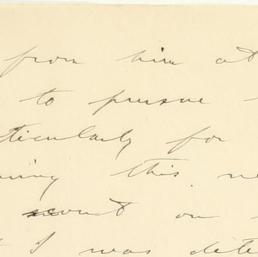 from him at
to pursue
ticularly for
ning this
count on
I was dete